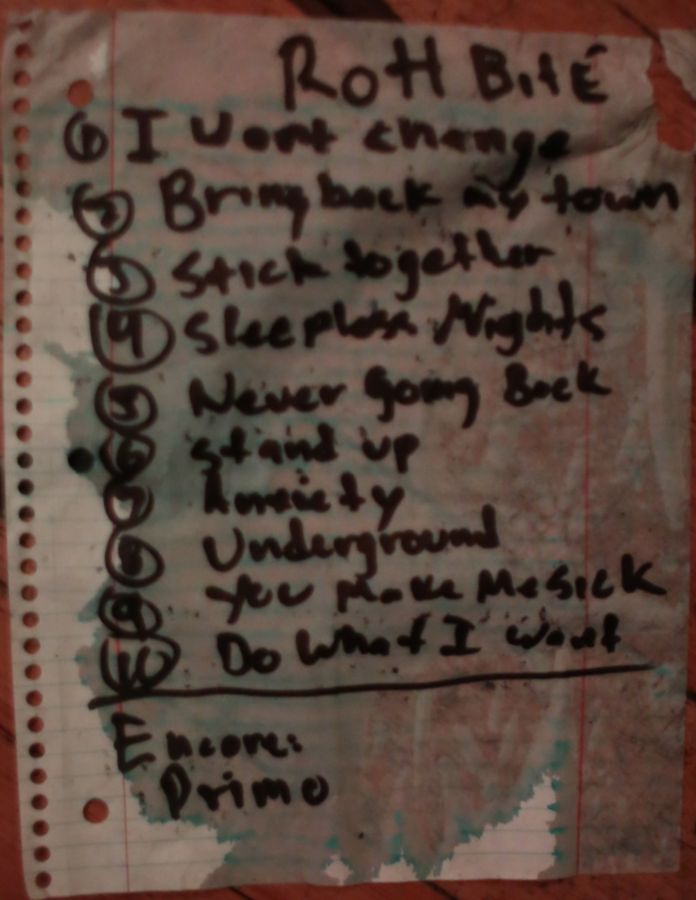 RottBitE
① I wont change
② Bring back my town
③ Stick together
④ Sleepless Nights
⑤ Never Going Back
⑥ Stand up
⑦ Anxiety
⑧ Underground
⑨ You Make Me Sick
⑩ Do What I want
Encore:
Primo